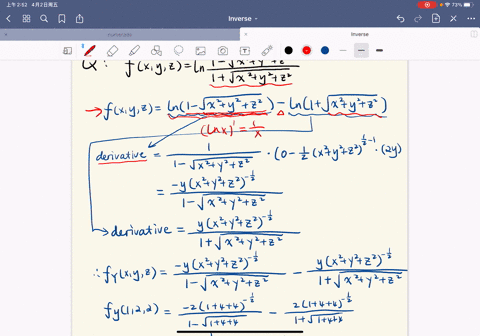 上午 2:52 4月2日周五
Inverse
73%
numericals
Inverse
Q: f(x,y,z) = ln (1-√(x²+y²+z²))/(1+√(x²+y²+z²))
→ f(x,y,z) = ln(1-√(x²+y²+z²)) - ln(1+√(x²+y²+z²))
(lnx)' = 1/x
derivative = 1/(1-√(x²+y²+z²)) · (0-½(x²+y²+z²)^(½-1) · (2y)
= -y(x²+y²+z²)^(-½)/(1-√(x²+y²+z²))
→ derivative = y(x²+y²+z²)^(-½)/(1+√(x²+y²+z²))
∴ fy(x,y,z) = -y(x²+y²+z²)^(-½)/(1-√(x²+y²+z²)) - y(x²+y²+z²)^(-½)/(1+√(x²+y²+z²))
fy(1,2,2) = -2(1+4+4)^(-½)/(1-√(1+4+4)) - 2(1+4+4)^(-½)/(1+√(1+4+4))